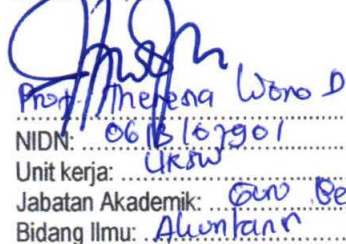 Prof. Theresia Woro D
NIDN: 0613107901
Unit kerja: UKSW
Jabatan Akademik: Guru Be
Bidang Ilmu: Akuntansi